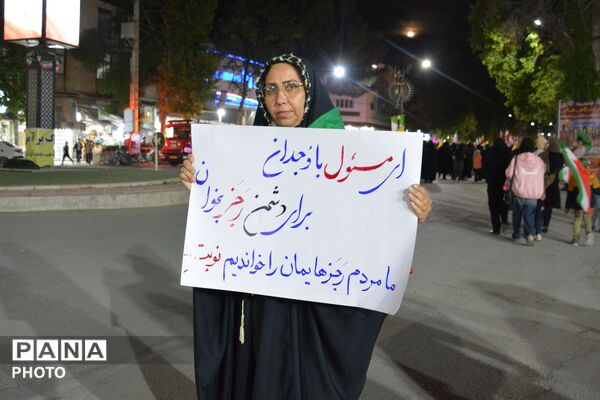 ای مسئول با وُجدان
برای دشمن رَجَز بخوان
ما مردم رَجَزهایمان را خواندیم نوبت
PANA
PHOTO